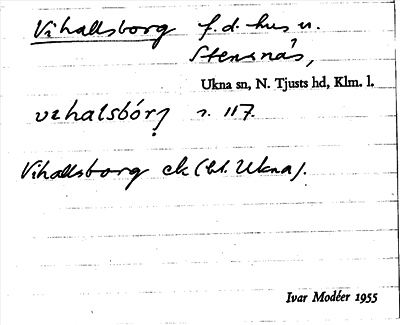 Vihallsborg f.d. hus u.
Stensnäs,
Ukna sn, N. Tjusts hd, Klm. l.
vihalsbórj s. 117.
Vihallsborg ek (bl. Ukna).
Ivar Modéer 1955